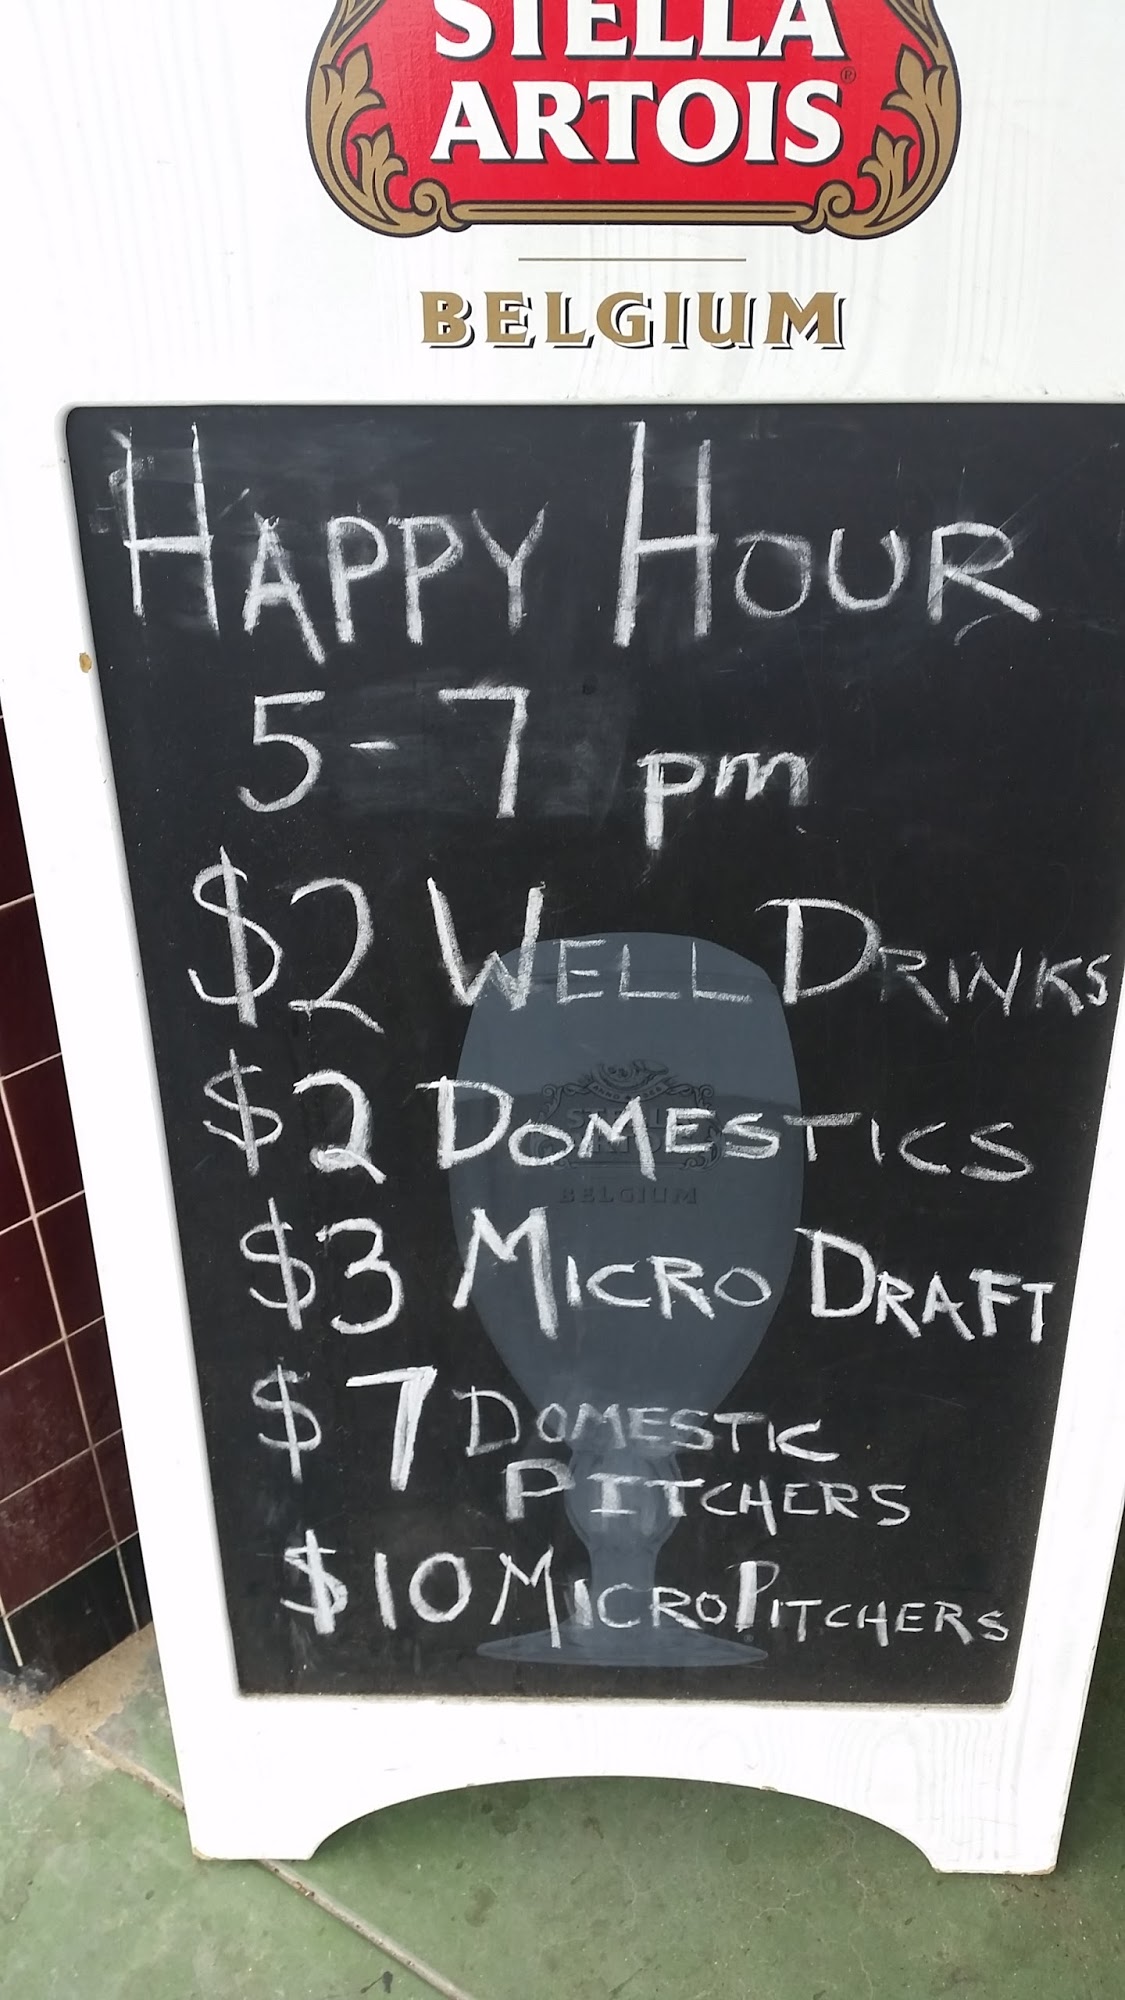 STELLA
ARTOIS®
BELGIUM
HAPPY HOUR
5-7 pm
$2 WELL DRINKS
$2 DOMESTICS
STELLA
ARTOIS
BELGIUM
$3 MICRO DRAFT
$7 DOMESTIC
PITCHERS
$10 MICRO PITCHERS